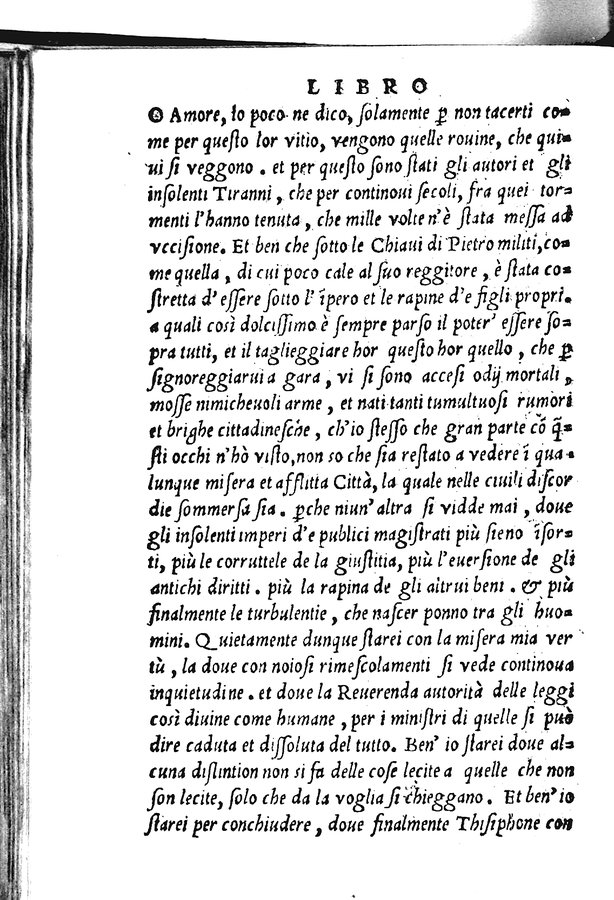 LIBRO
O Amore, Io poco ne dico, ſolamente ꝑ non tacerti co=
me per queſto lor vitio, vengono quelle rouine, che qui=
ui ſi veggono. et per queſto ſono ſtati gli autori et gli
inſolenti Tiranni, che per continoui ſecoli, fra quei tor=
menti l'hanno tenuta, che mille volte n'è ſtata meſſa ad
vcciſione. Et ben che ſotto le Chiaui di Pietro militi, co=
me quella, di cui poco cale al ſuo reggitore, è ſtata co=
ſtretta d'eſſere ſotto l'ĩpero et le rapine d'e figli propri.
a quali così dolciſſimo è ſempre parſo il poter' eſſere ſo=
pra tutti, et il taglieggiare hor queſto hor quello, che ꝑ
ſignoreggiarui a gara, vi ſi ſono acceſi odij mortali,
moſſe nimicheuoli arme, et nati tanti tumultuoſi rumori
et brighe cittadineſche, ch'io ſteſſo che gran parte cõ q̃=
ſti occhi n'hò viſto, non so che ſia reſtato a vedere ĩ qua=
lunque miſera et afflitta Città, la quale nelle ciuili diſcor
die ſommerſa ſia. ꝑche niun'altra ſi vidde mai, doue
gli inſolenti imperi d'e publici magiſtrati più ſieno ĩſor=
ti, più le corruttele de la giuſtitia, più l'euerſione de gli
antichi diritti. più la rapina de gli altrui beni. & più
finalmente le turbulentie, che naſcer ponno tra gli huo=
mini. Quietamente dunque ſtarei con la miſera mia ver
tù, la doue con noioſi rimeſcolamenti ſi vede continoua
inquietudine. et doue la Reuerenda autorità delle leggi
così diuine come humane, per i miniſtri di quelle ſi può
dire caduta et diſſoluta del tutto. Ben' io ſtarei doue al=
cuna diſtintion non si fa delle coſe lecite a quelle che non
ſon lecite, ſolo che da la voglia ſi chieggano. Et ben'io
ſtarei per conchiudere, doue finalmente Thiſiphone con